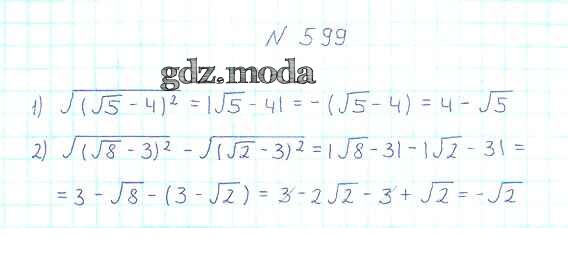 N 599
gdz.moda
1) √(√5 - 4)² = |√5 - 4| = -(√5 - 4) = 4 - √5
2) √(√8 - 3)² - √(√2 - 3)² = |√8 - 3| - |√2 - 3| =
= 3 - √8 - (3 - √2) = 3 - 2√2 - 3 + √2 = -√2